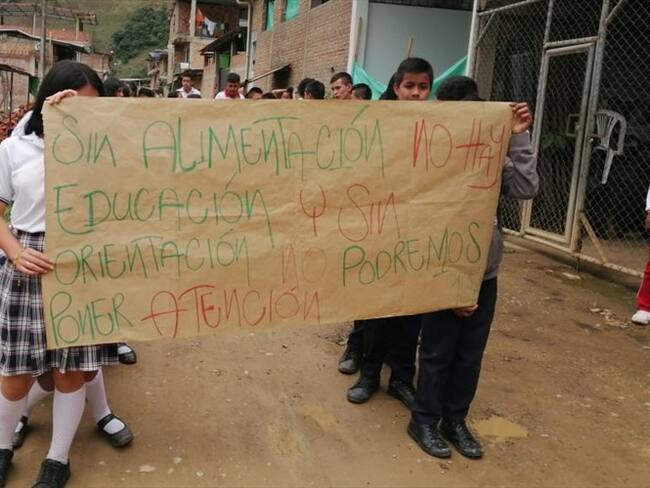 Sin ALIMENTACIÓN NO HAY
EDUCACIÓN Y SIN
ORIENTACIÓN NO PODREMOS
PONER ATENCIÓN